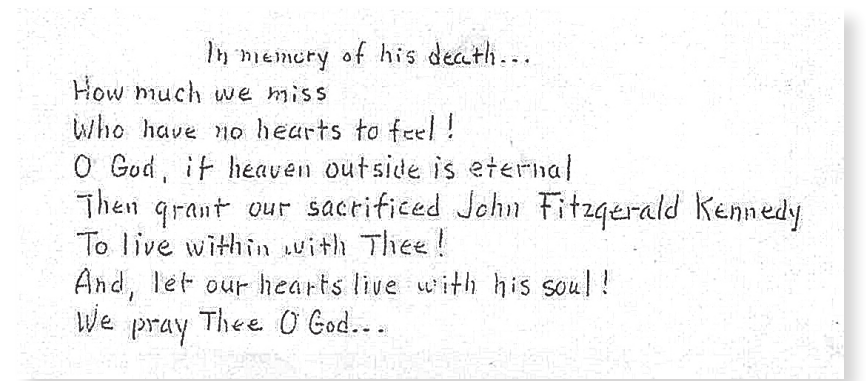 In memory of his death...
How much we miss
Who have no hearts to feel!
O God, if heaven outside is eternal
Then grant our sacrificed John Fitzgerald Kennedy
To live within with Thee!
And, let our hearts live with his soul!
We pray Thee O God...